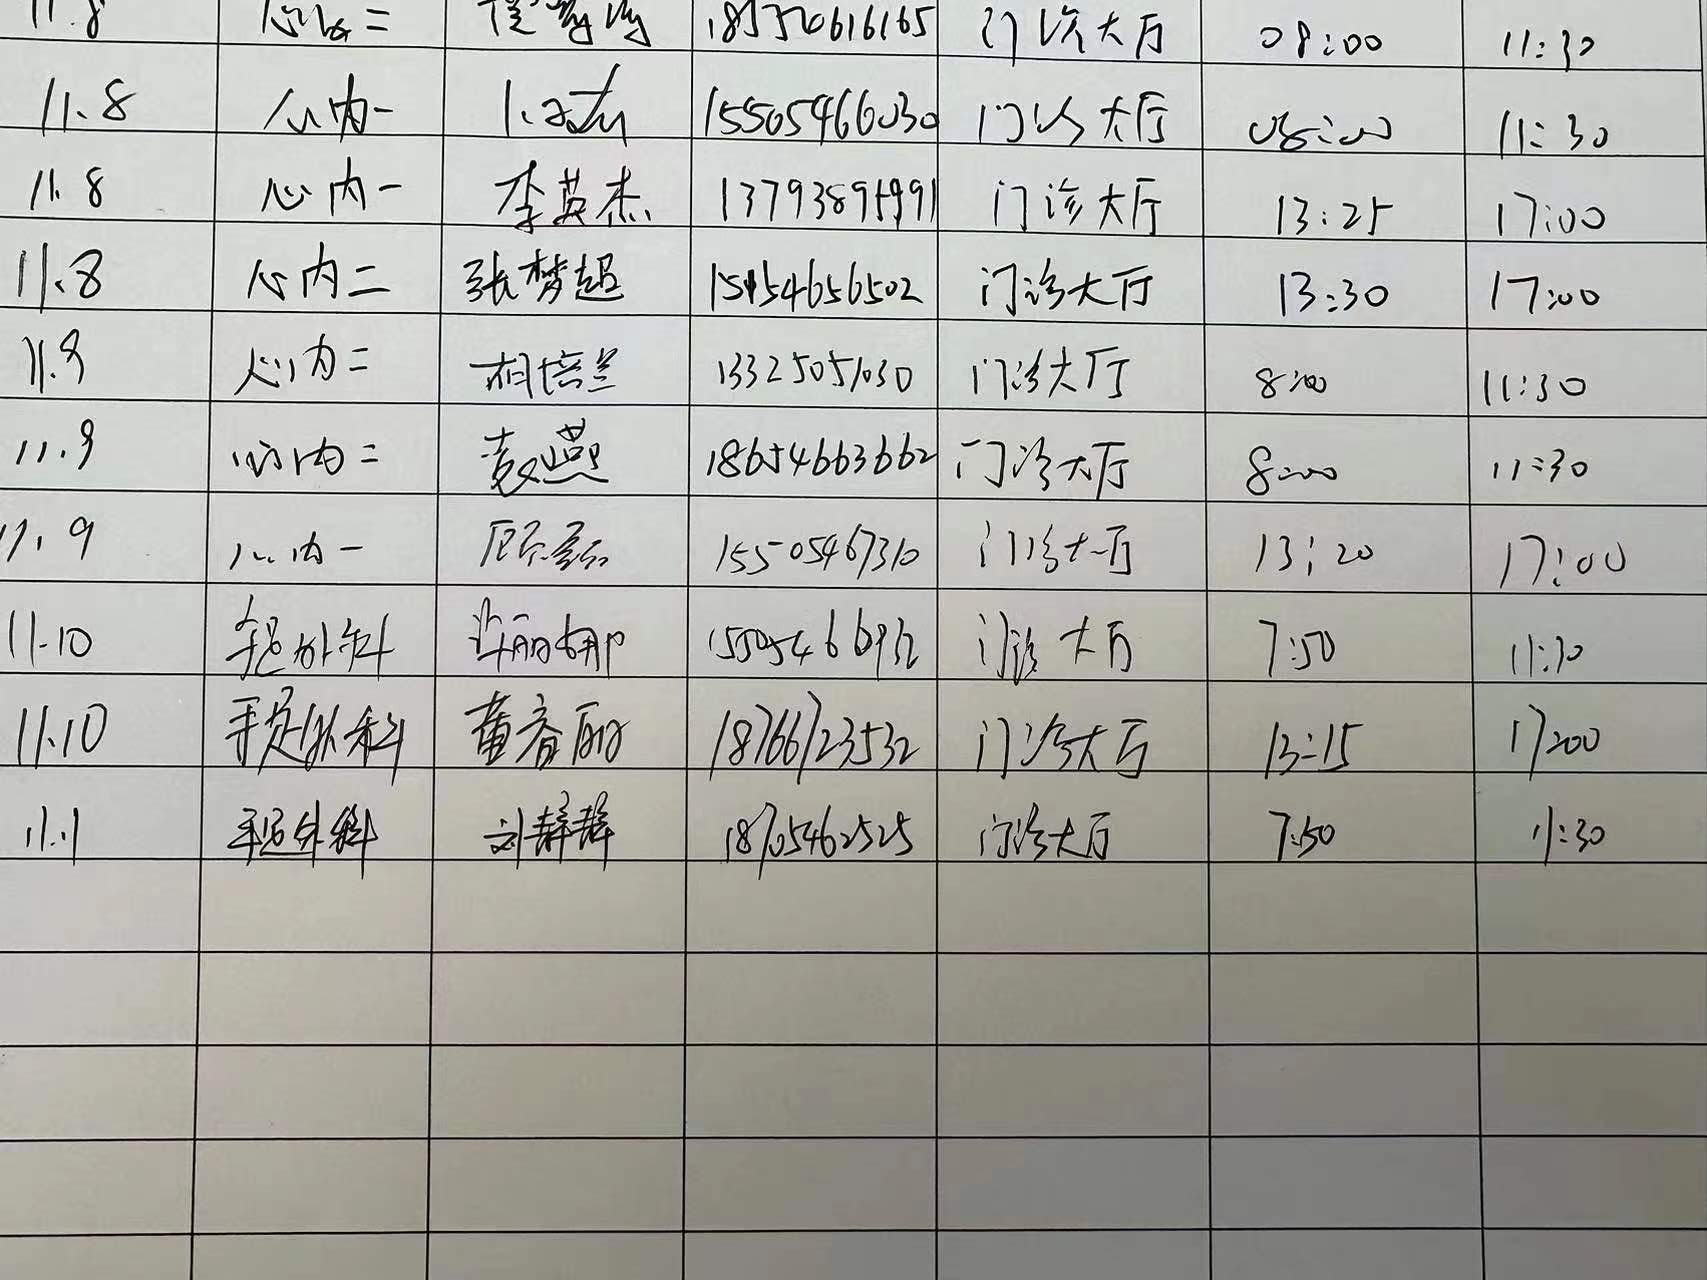 11.8 心内二 18572616165 门诊大厅 08:00 11:30
11.8 心内一 15505466030 门诊大厅 08:00 11:30
11.8 心内一 李英杰 13793895991 门诊大厅 13:25 17:00
11.8 心内二 张梦超 15154656502 门诊大厅 13:30 17:00
11.9 心内二 相培兰 13325051030 门诊大厅 8:00 11:30
11.9 心内二 袁燕 18654663662 门诊大厅 8:00 11:30
11.9 心内一 顾磊磊 15505467310 门诊大厅 13:20 17:00
11.10 手足外科 许丽娜 门诊大厅 7:50 11:30
11.10 手足外科 董春丽 18766723532 门诊大厅 13:15 17:00
11.11 手足外科 刘静静 18705462525 门诊大厅 7:50 11:30